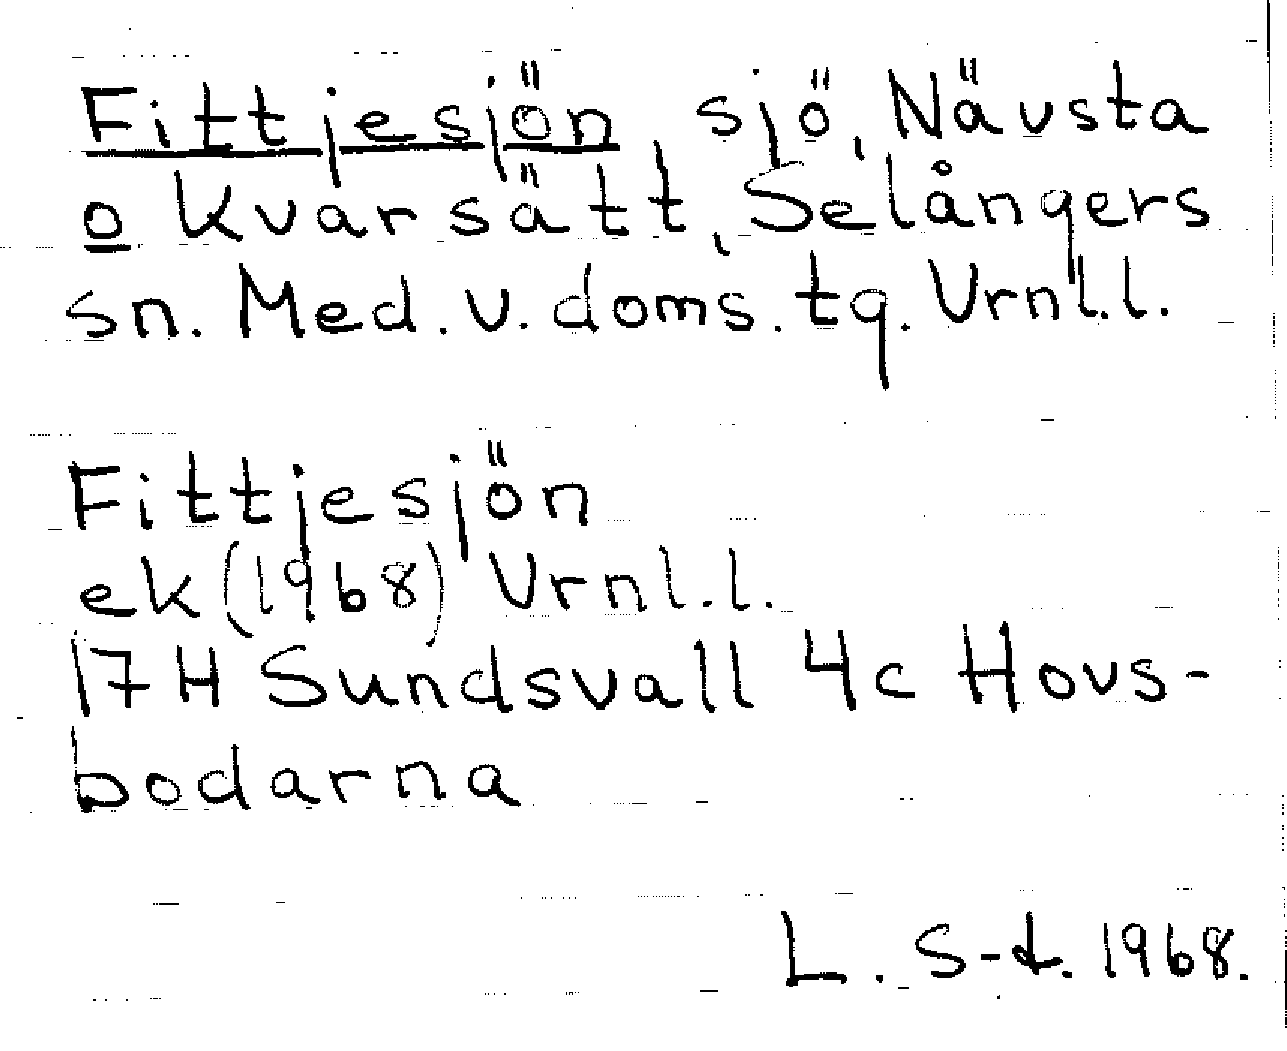 Fittjesjön, sjö, Nävsta
o Kvarsätt, Selångers
sn. Med. v. doms. tg. Vrnl.l.
Fittjesjön
ek (1968) Vrnl.l.
17H Sundsvall 4c Hovs-
bodarna
L. S-t. 1968.